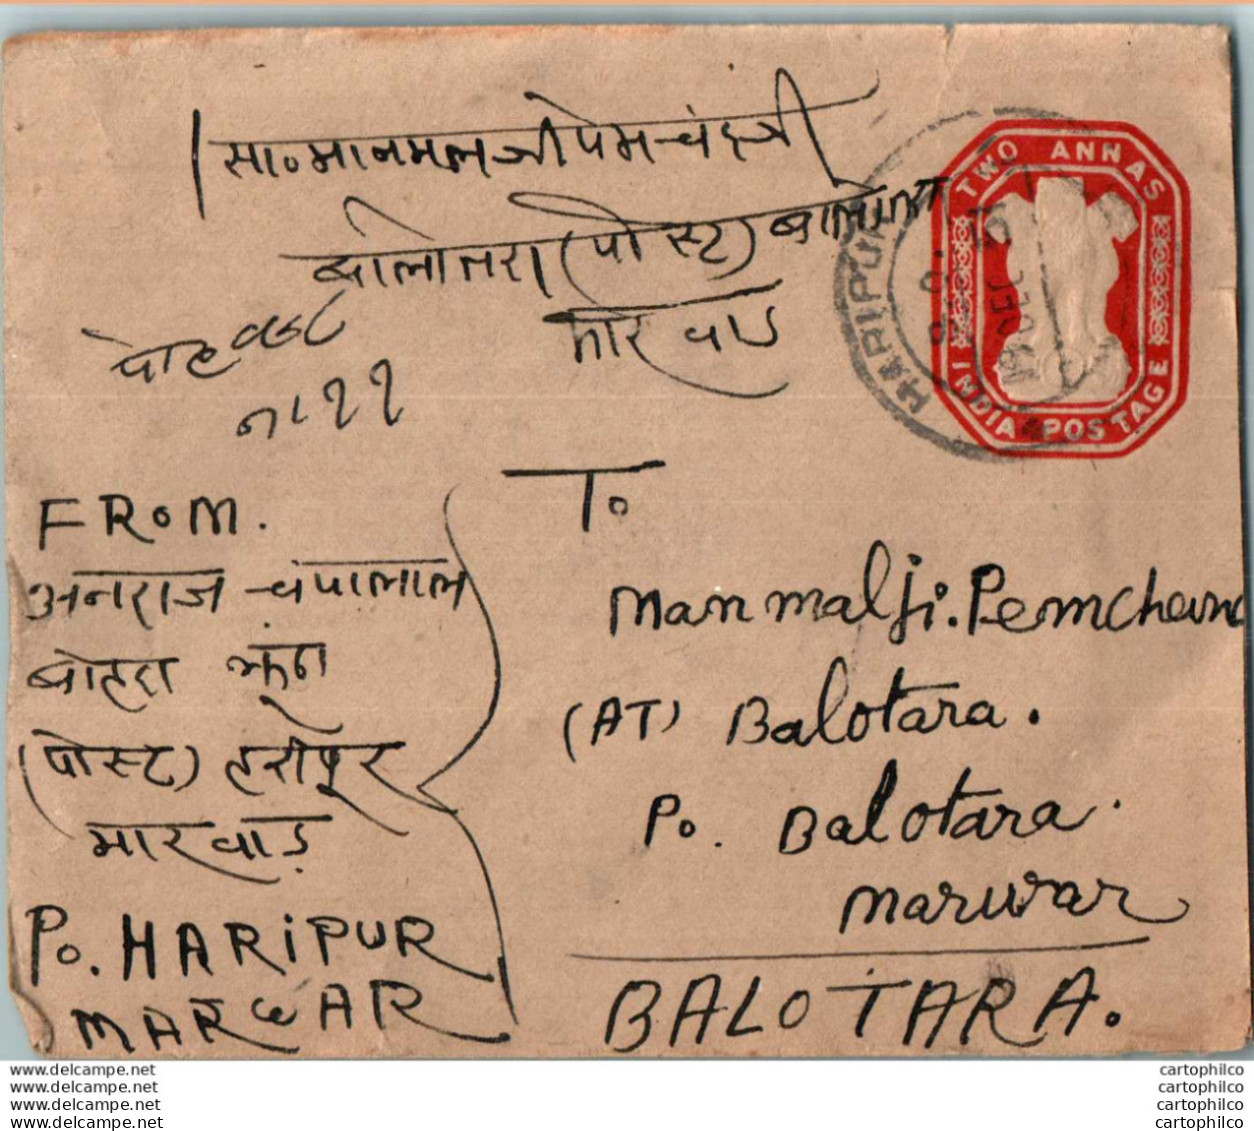 सा॰मानमलजी पेमचंदजी
बालोतरा (पोस्ट) बालोतरा
मारवाड
TWO ANNAS
INDIA POSTAGE
HARIPUR
न। ११
FROM.
अनराज चंपालाल
बोहरा
(पोस्ट) हरीपुर
मारवाड़
Po. HARIPUR
MARWAR
To
Manmalji. Pemchand
(AT) Balotara.
Po. Balotara.
Marwar
BALOTARA.
www.delcampe.net
www.delcampe.net
www.delcampe.net
www.delcampe.net
cartophilco
cartophilco
cartophilco
cartophilco